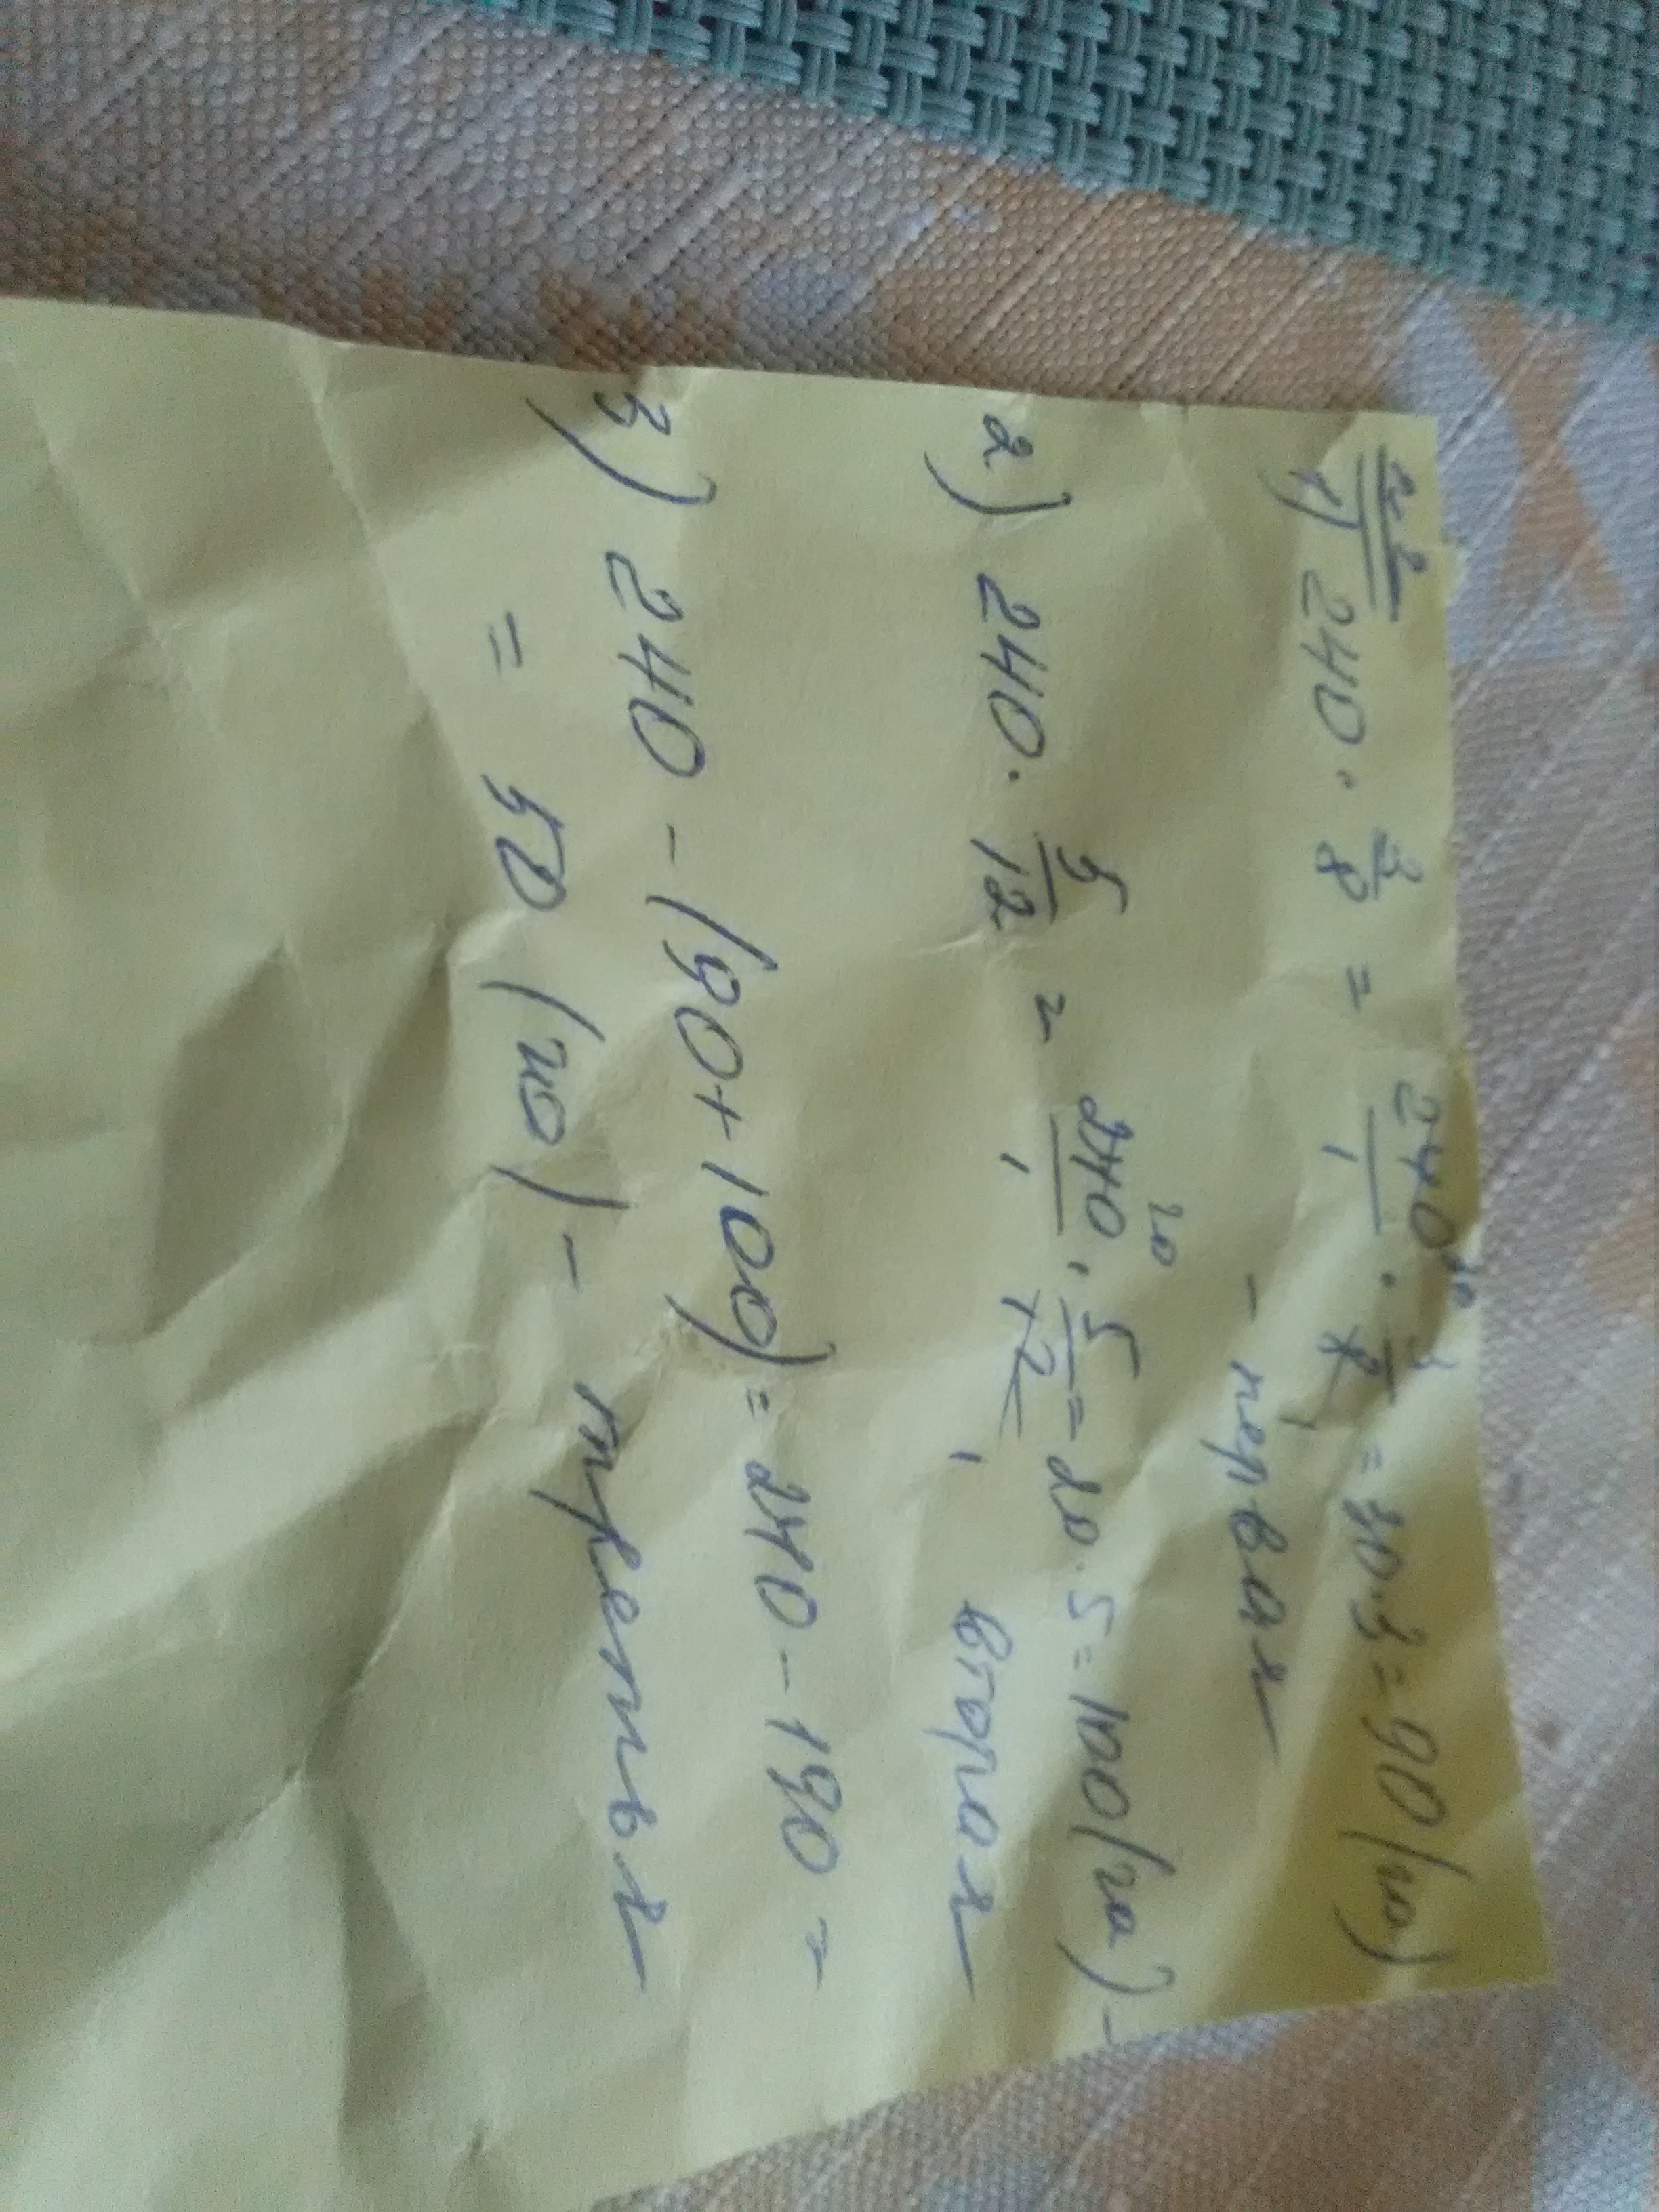 №2
1) 240 · 3/8 = 240/1 30 · 3/8 1 = 30 · 3 = 90 (га)
- первая
2) 240 · 5/12 = 240/1 20 · 5/12 1 = 20 · 5 = 100 (га) -
вторая
3) 240 - (90 + 100) = 240 - 190 =
= 50 (га) - третья